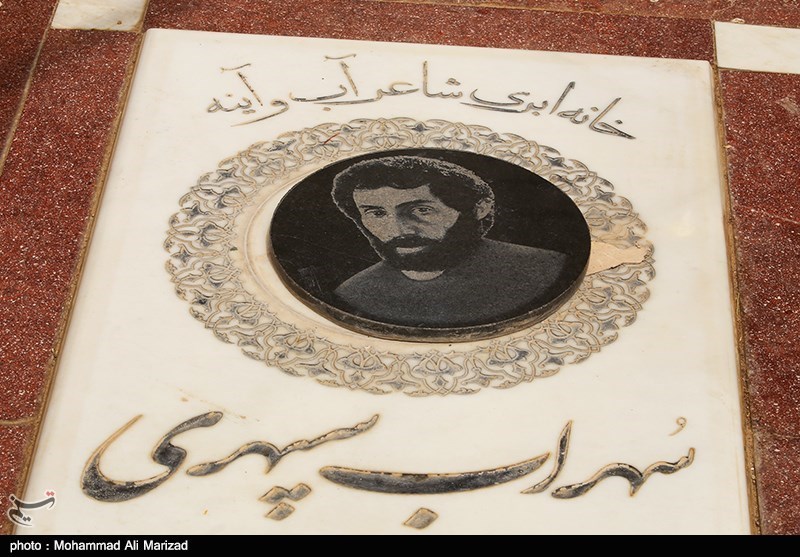 خانه ابری شاعر آب و آینه
سُهراب سپهری
تسنیم
photo : Mohammad Ali Marizad